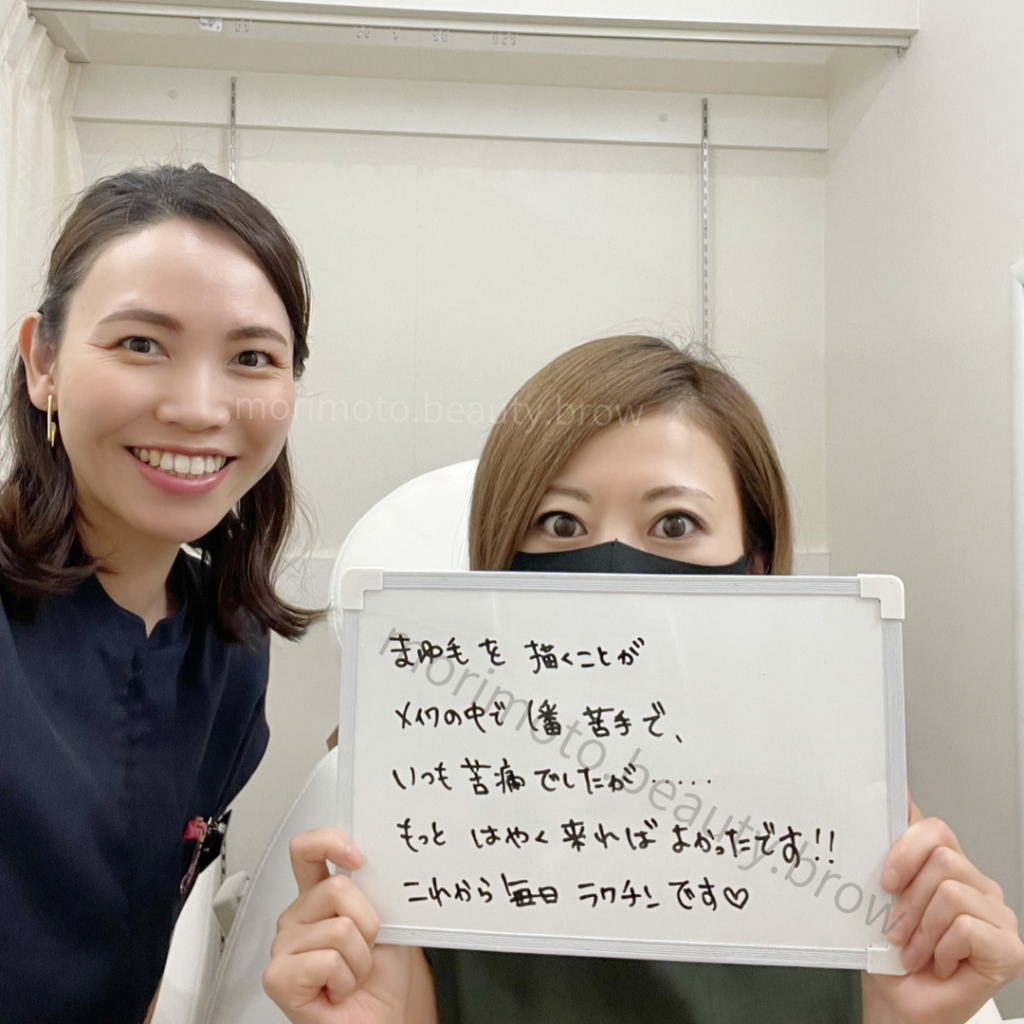 morimoto.beauty.brow
まゆ毛を 描くことが
メイクの中で 1番 苦手で、
いつも 苦痛でしたが‥‥‥
もっと はやく 来れば よかったです!!
これから 毎日 ラクチンです♡
morimoto.beauty.brow